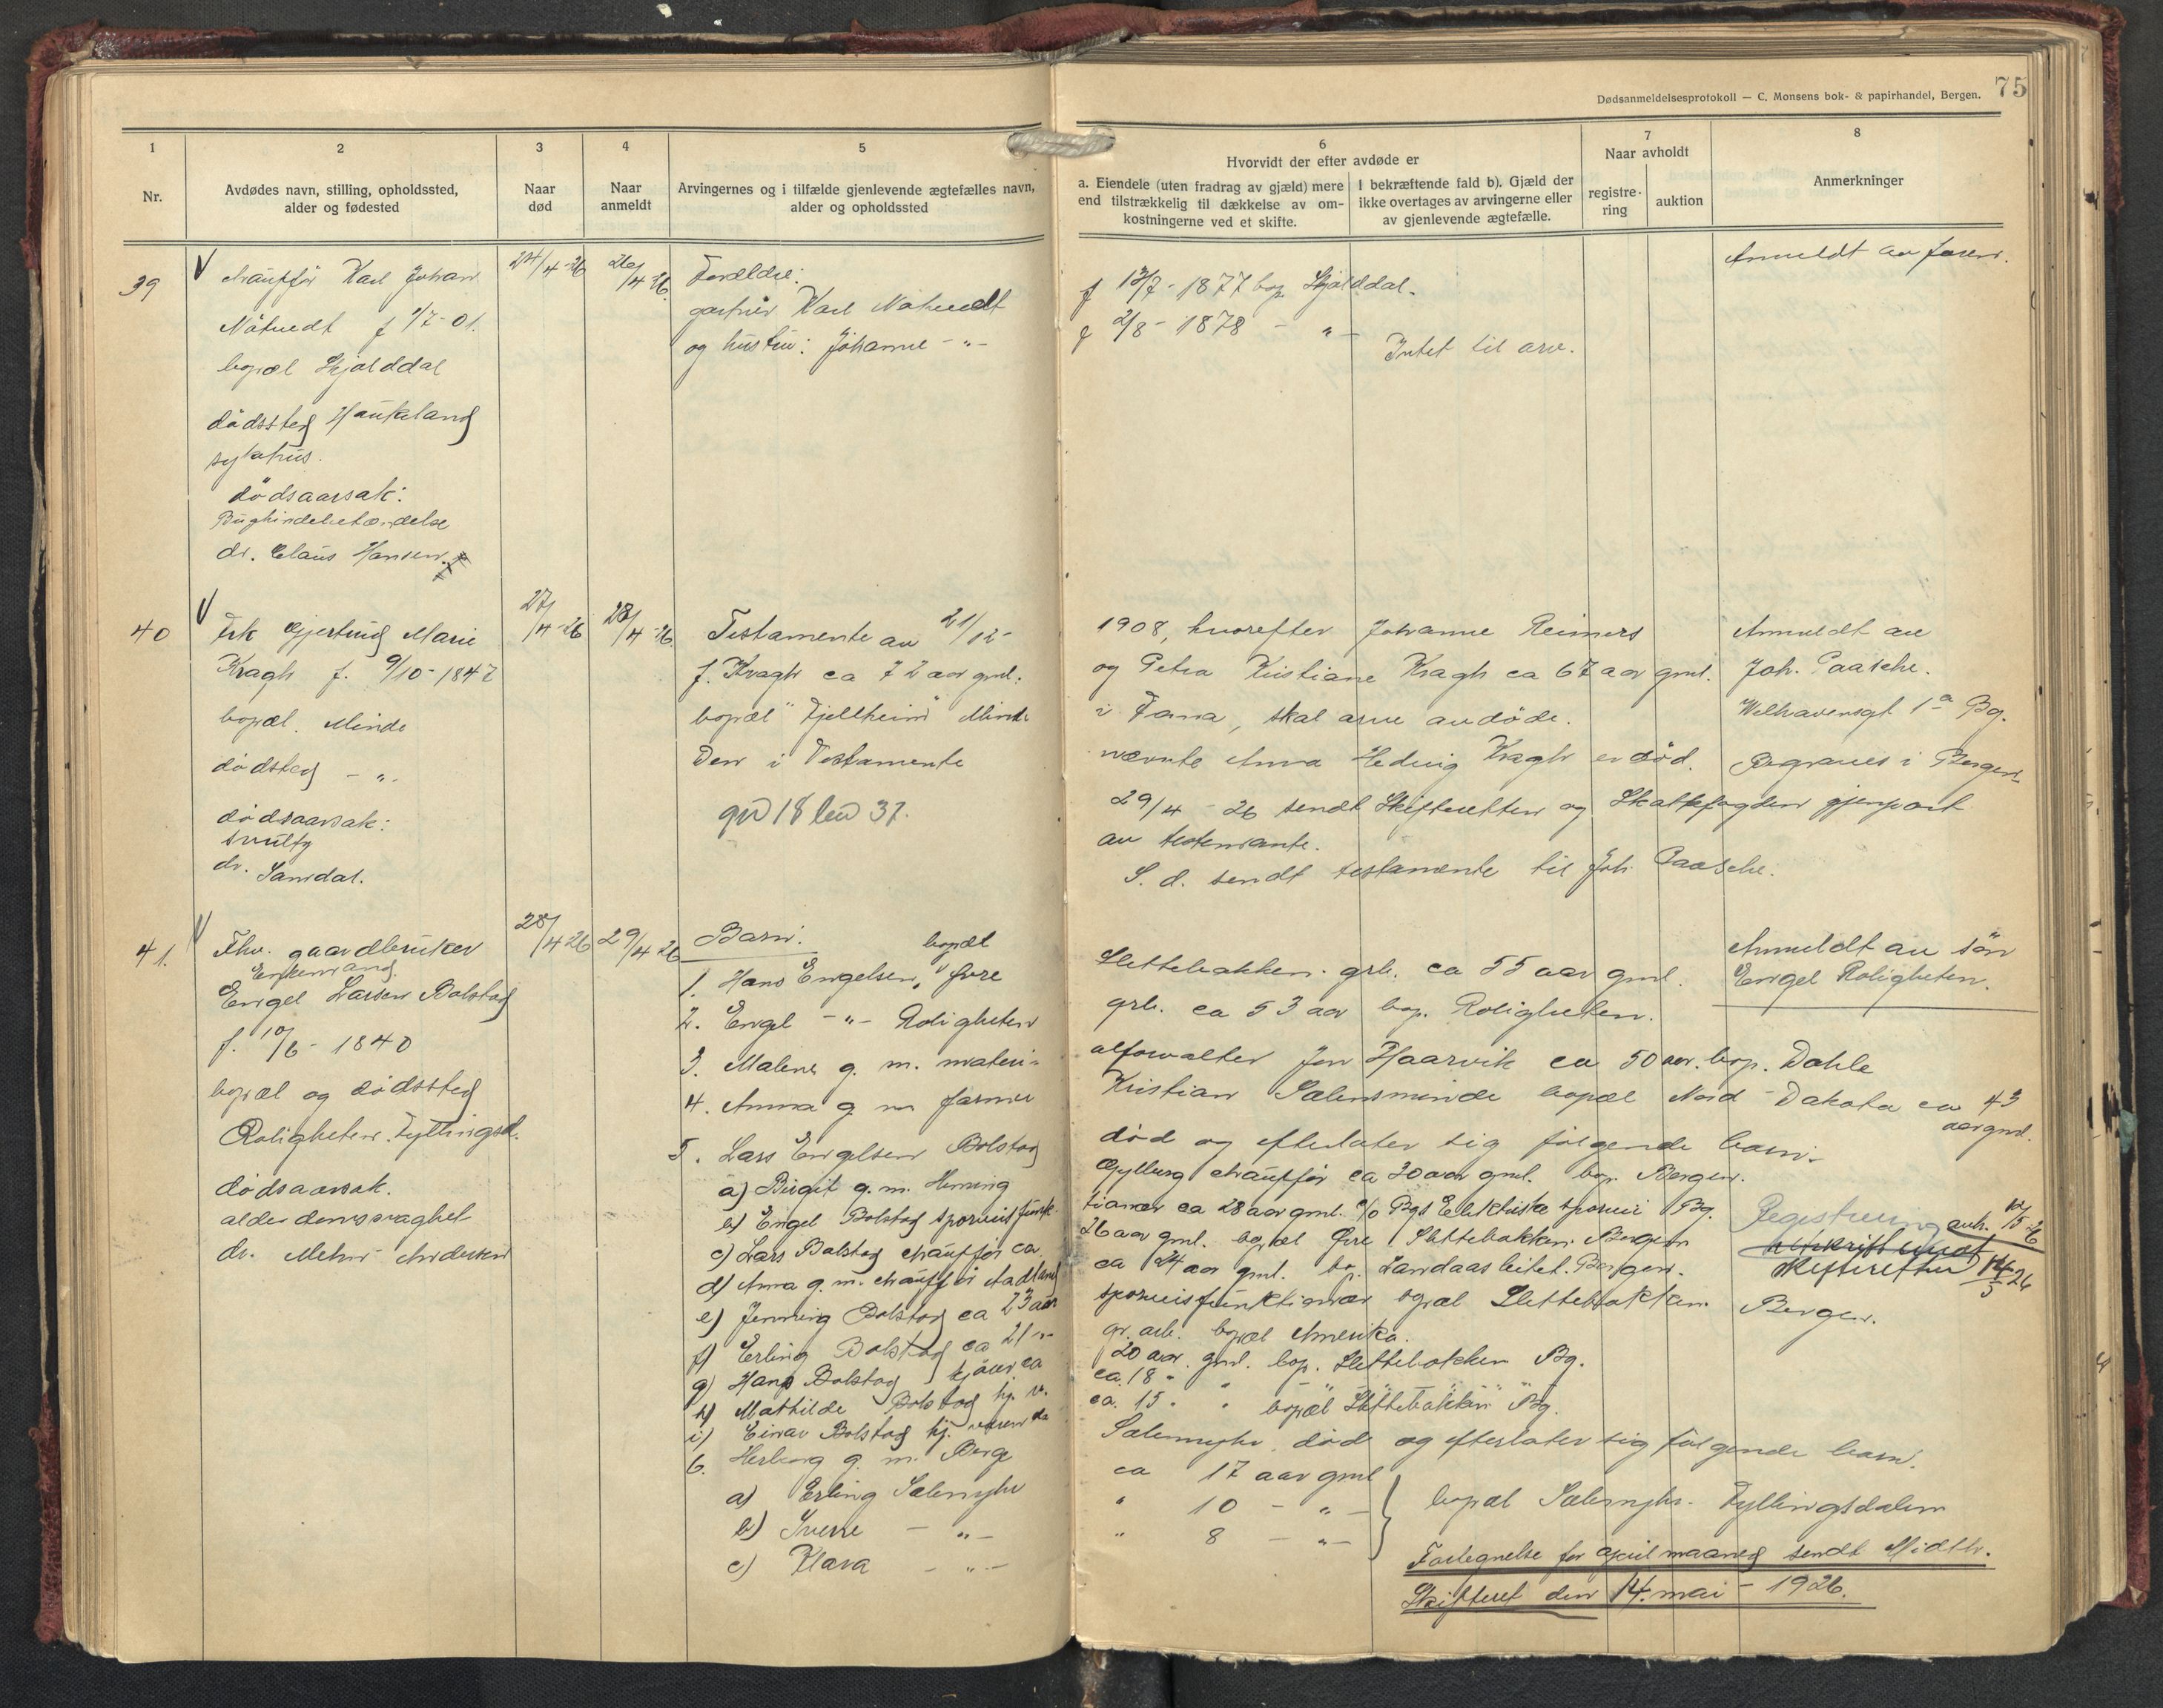 75
Dødsanmeldelsesprotokoll — C. Monsens bok- & papirhandel, Bergen.
1
Nr.
2
Avdødes navn, stilling, opholdssted,
alder og fødested
3
Naar
død
4
Naar
anmeldt
5
Arvingernes og i tilfælde gjenlevende ægtefælles navn,
alder og opholdssted
6
Hvorvidt der efter avdøde er
a. Eiendele (uten fradrag av gjæld) mere
end tilstrækkelig til dækkelse av om-
kostningerne ved et skifte.
I bekræftende fald b). Gjæld der
ikke overtages av arvingerne eller
av gjenlevende ægtefælle.
7
Naar avholdt
registre-
ring
auktion
8
Anmerkninger
39
V chauffør Karl Johan
Nåtvedt f 1/7-01.
bopæl Skjolddal
dødssted Haukeland
sykehus.
dødsaarsak:
Bughindebetændelse
dr. Claus Hansen.
24/4-26
26/4-26.
Forældre:
gartner Karl Natvedt
og hustru: Johanne -"-
f 13/7-1877 bop. Skjolddal.
f 2/8-1878 - " -
Intet til arv.
Anmeldt av faren.
40
V Frk Gjertrud Marie
Kragh f. 9/10-1847
bopæl. Minde
dødsted - " -
dødsaarsak:
svulst
dr. Sandal.
27/4-26
28/4-26.
Testamente av 21/12-
f. Kragh ca 72 aar gml.
bopæl "Fjellheim" Minde
Den i Testamente
1908, hvorefter Johanne Reimers
og Petra Kristiane Kragh ca 67 aar gml.
i Fana, skal arve avdøde.
nævnte Anna Hedvig Kragh er død.
29/4-26 sendt Skifteretten og Skattefogden gjenpart
av testamente.
S. d. sendt testamente til Joh. Paasche.
Anmeldt av
Joh. Paasche.
Welhavensgt 1a Bg.
Begraves i Bergen
41.
V Fhv. gaardbruker
Enkemand.
Engel Larsen Bolstad
f. 10/6-1840
bopæl og dødssted
Roligheten. Fyllingsd.
dødsaarsak.
alderdomssvaghet
dr. Mohr Andersen
28/4 26
29/4 26
Barn: bopæl
1. Hans Engelsen, Øvre
2. Engel -"- Roligheten
3. Malene g. m. materi-
4. Anna g m farmer
5. Lars Engelsen Bolstad
a) Birgit g. m. Henning
b) Engel Bolstad sporveisfunk-
c) Lars Bolstad chauffør ca
d) Anna g. m. chauffør Aadland
e) Jenning Bolstad ca 23 aar
f) Erling Bolstad ca 21 "
g) Hans Bolstad kjører ca
h) Mathilde Bolstad hj. v.
i) Einar Bolstad hj. værende
6. Herborg g. m. Berge
a) Erling Sælemyhr
b) Sverre - " -
c) Klara - " -
Slettebakken. grb. ca 55 aar gml.
grb. ca 53 aar bop. Roligheten.
alforvalter Jon Haarvik ca 50 aar. bop. Dahle
Kristian Sælensminde bopæl Nord Dakota ca 43
aar gml.
død og efterlater sig følgende barn:
Gylberg chauffør ca 30 aar gml. bop. Bergen.
tionær ca 28 aar gml. c/o Bgs Elektriske sporvei Bg.
26 aar gml. bopæl Øvre Slettebakken Bergen
ca 24 aar gml. bo. Landaasleitet. Bergen.
sporveisfunktionær bopæl Slettebakken
gr. arb. bopæl Amerika.
20 aar. gml. bop. Slettebakken Bg.
ca. 18 "
ca. 15 " " bopæl Slettebakken Bg.
Sælemyhr. død og efterlater sig følgende barn:
ca 17 aar gml
" 10 - " -
" 8 - " -
bopæl Sælemyhr. Fyllingsdalen
Anmeldt av søn
Engel Roligheten.
Registrering
Skifteretten 14/5 26
Bergen.
Fortegnelse for april maaned sendt Midthl.
Skifteret den 14. mai - 1926.